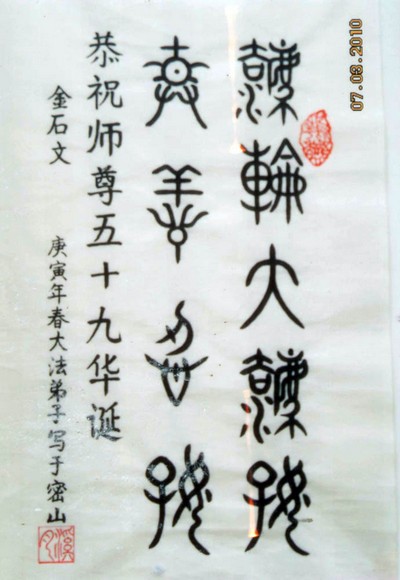 灋輪大灋好
真善忍好
恭祝师尊五十九华诞
金石文 庚寅年春大法弟子写于密山
07.03.2010